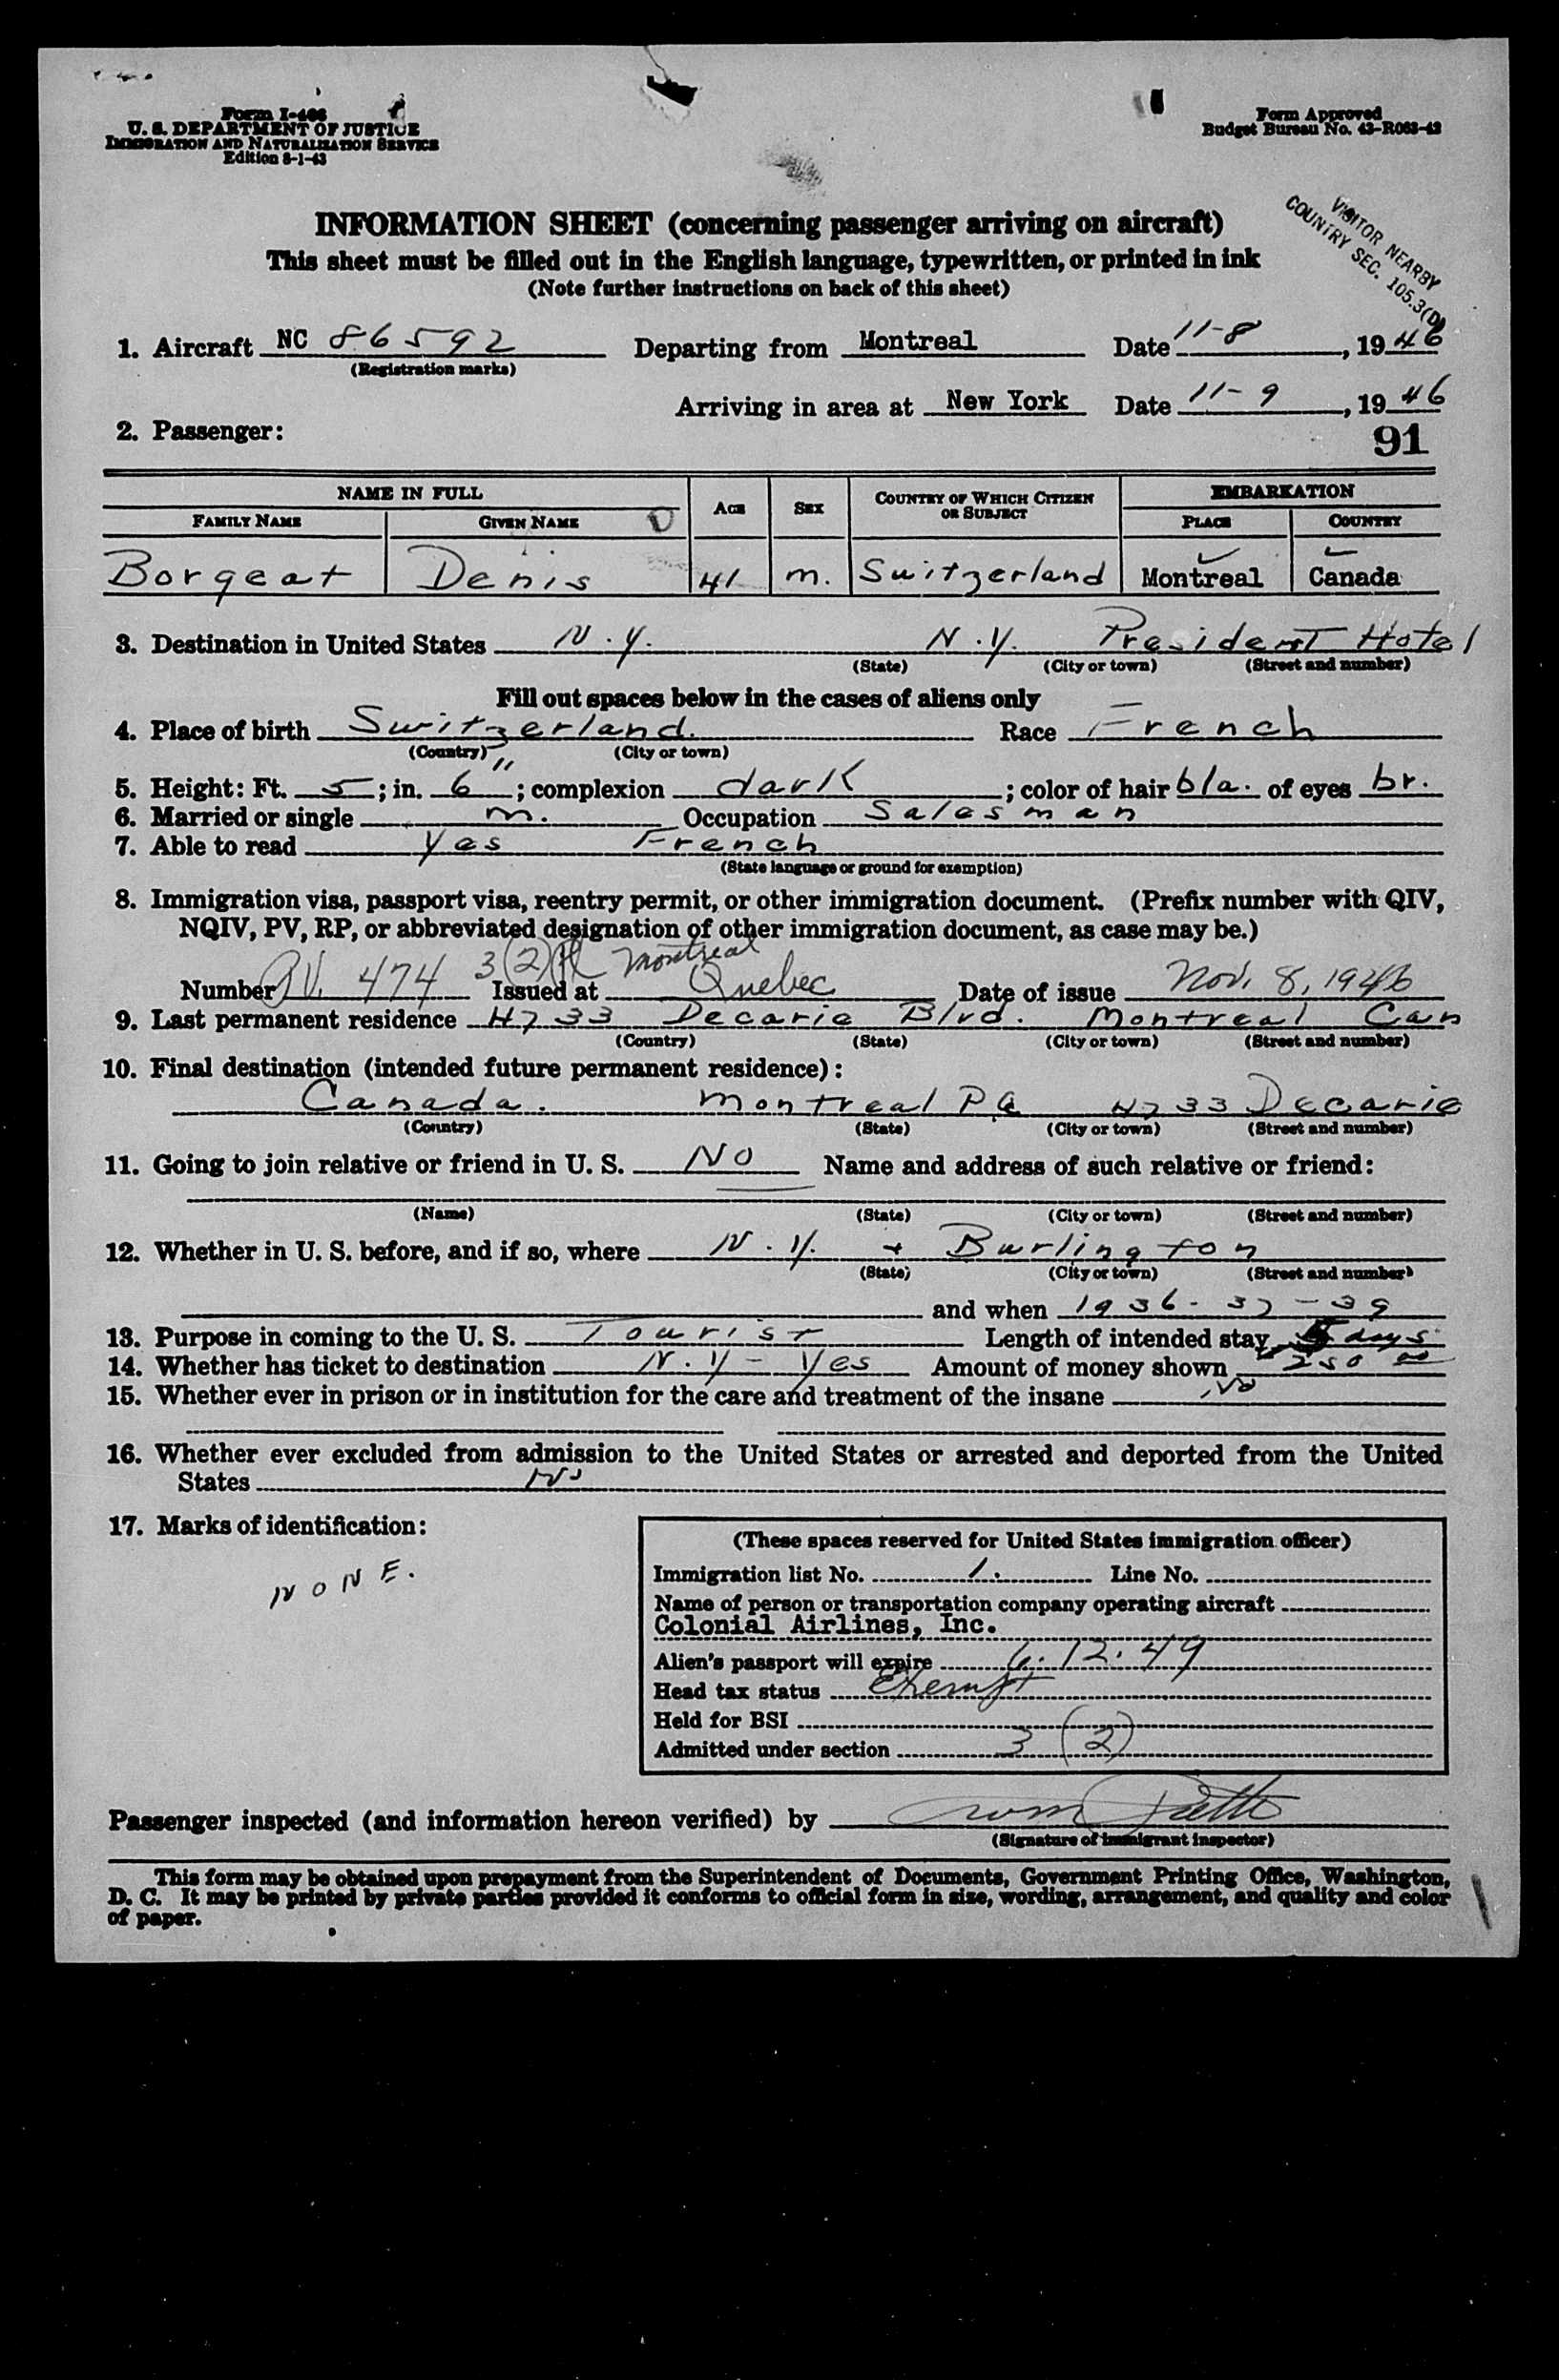 Form I-466
U. S. DEPARTMENT OF JUSTICE
IMMIGRATION AND NATURALIZATION SERVICE
Edition 8-1-43
Form Approved
Budget Bureau No. 43-R063-42
VISITOR NEARBY
COUNTRY SEC. 105.3(D)
INFORMATION SHEET (concerning passenger arriving on aircraft)
This sheet must be filled out in the English language, typewritten, or printed in ink
(Note further instructions on back of this sheet)
1. Aircraft NC 86592 Departing from Montreal Date 11-8, 1946
(Registration marks)
Arriving in area at New York Date 11-9, 1946
2. Passenger:
91
NAME IN FULL AGE SEX COUNTRY OF WHICH CITIZEN OR SUBJECT EMBARKATION
FAMILY NAME GIVEN NAME PLACE COUNTRY
Borgeat Denis 41 m. Switzerland Montreal Canada
3. Destination in United States N.Y. N.Y. President Hotel
(State) (City or town) (Street and number)
Fill out spaces below in the cases of aliens only
4. Place of birth Switzerland. Race French
(Country) (City or town)
5. Height: Ft. 5; in. 6"; complexion dark; color of hair bla. of eyes br.
6. Married or single m. Occupation Salesman
7. Able to read Yes French
(State language or ground for exemption)
8. Immigration visa, passport visa, reentry permit, or other immigration document. (Prefix number with QIV,
NQIV, PV, RP, or abbreviated designation of other immigration document, as case may be.)
3(2) Montreal
Number PV. 474 Issued at Quebec Date of issue Nov. 8, 1946
9. Last permanent residence 4733 Decarie Blvd. Montreal Can
(Country) (State) (City or town) (Street and number)
10. Final destination (intended future permanent residence):
Canada. Montreal PQ 4733 Decarie
(Country) (State) (City or town) (Street and number)
11. Going to join relative or friend in U. S. No Name and address of such relative or friend:
(Name) (State) (City or town) (Street and number)
12. Whether in U. S. before, and if so, where N.Y. + Burlington
(State) (City or town) (Street and number)
and when 1936-37-39
13. Purpose in coming to the U. S. Tourist Length of intended stay 5 days
14. Whether has ticket to destination N.Y - Yes Amount of money shown 250 00
15. Whether ever in prison or in institution for the care and treatment of the insane No
16. Whether ever excluded from admission to the United States or arrested and deported from the United
States No
17. Marks of identification:
NONE.
(These spaces reserved for United States immigration officer)
Immigration list No. 1. Line No.
Name of person or transportation company operating aircraft
Colonial Airlines, Inc.
Alien's passport will expire 6.12.49
Head tax status Exempt
Held for BSI
Admitted under section 3 (2)
Passenger inspected (and information hereon verified) by
(Signature of immigrant inspector)
This form may be obtained upon prepayment from the Superintendent of Documents, Government Printing Office, Washington,
D. C. It may be printed by private parties provided it conforms to official form in size, wording, arrangement, and quality and color
of paper.